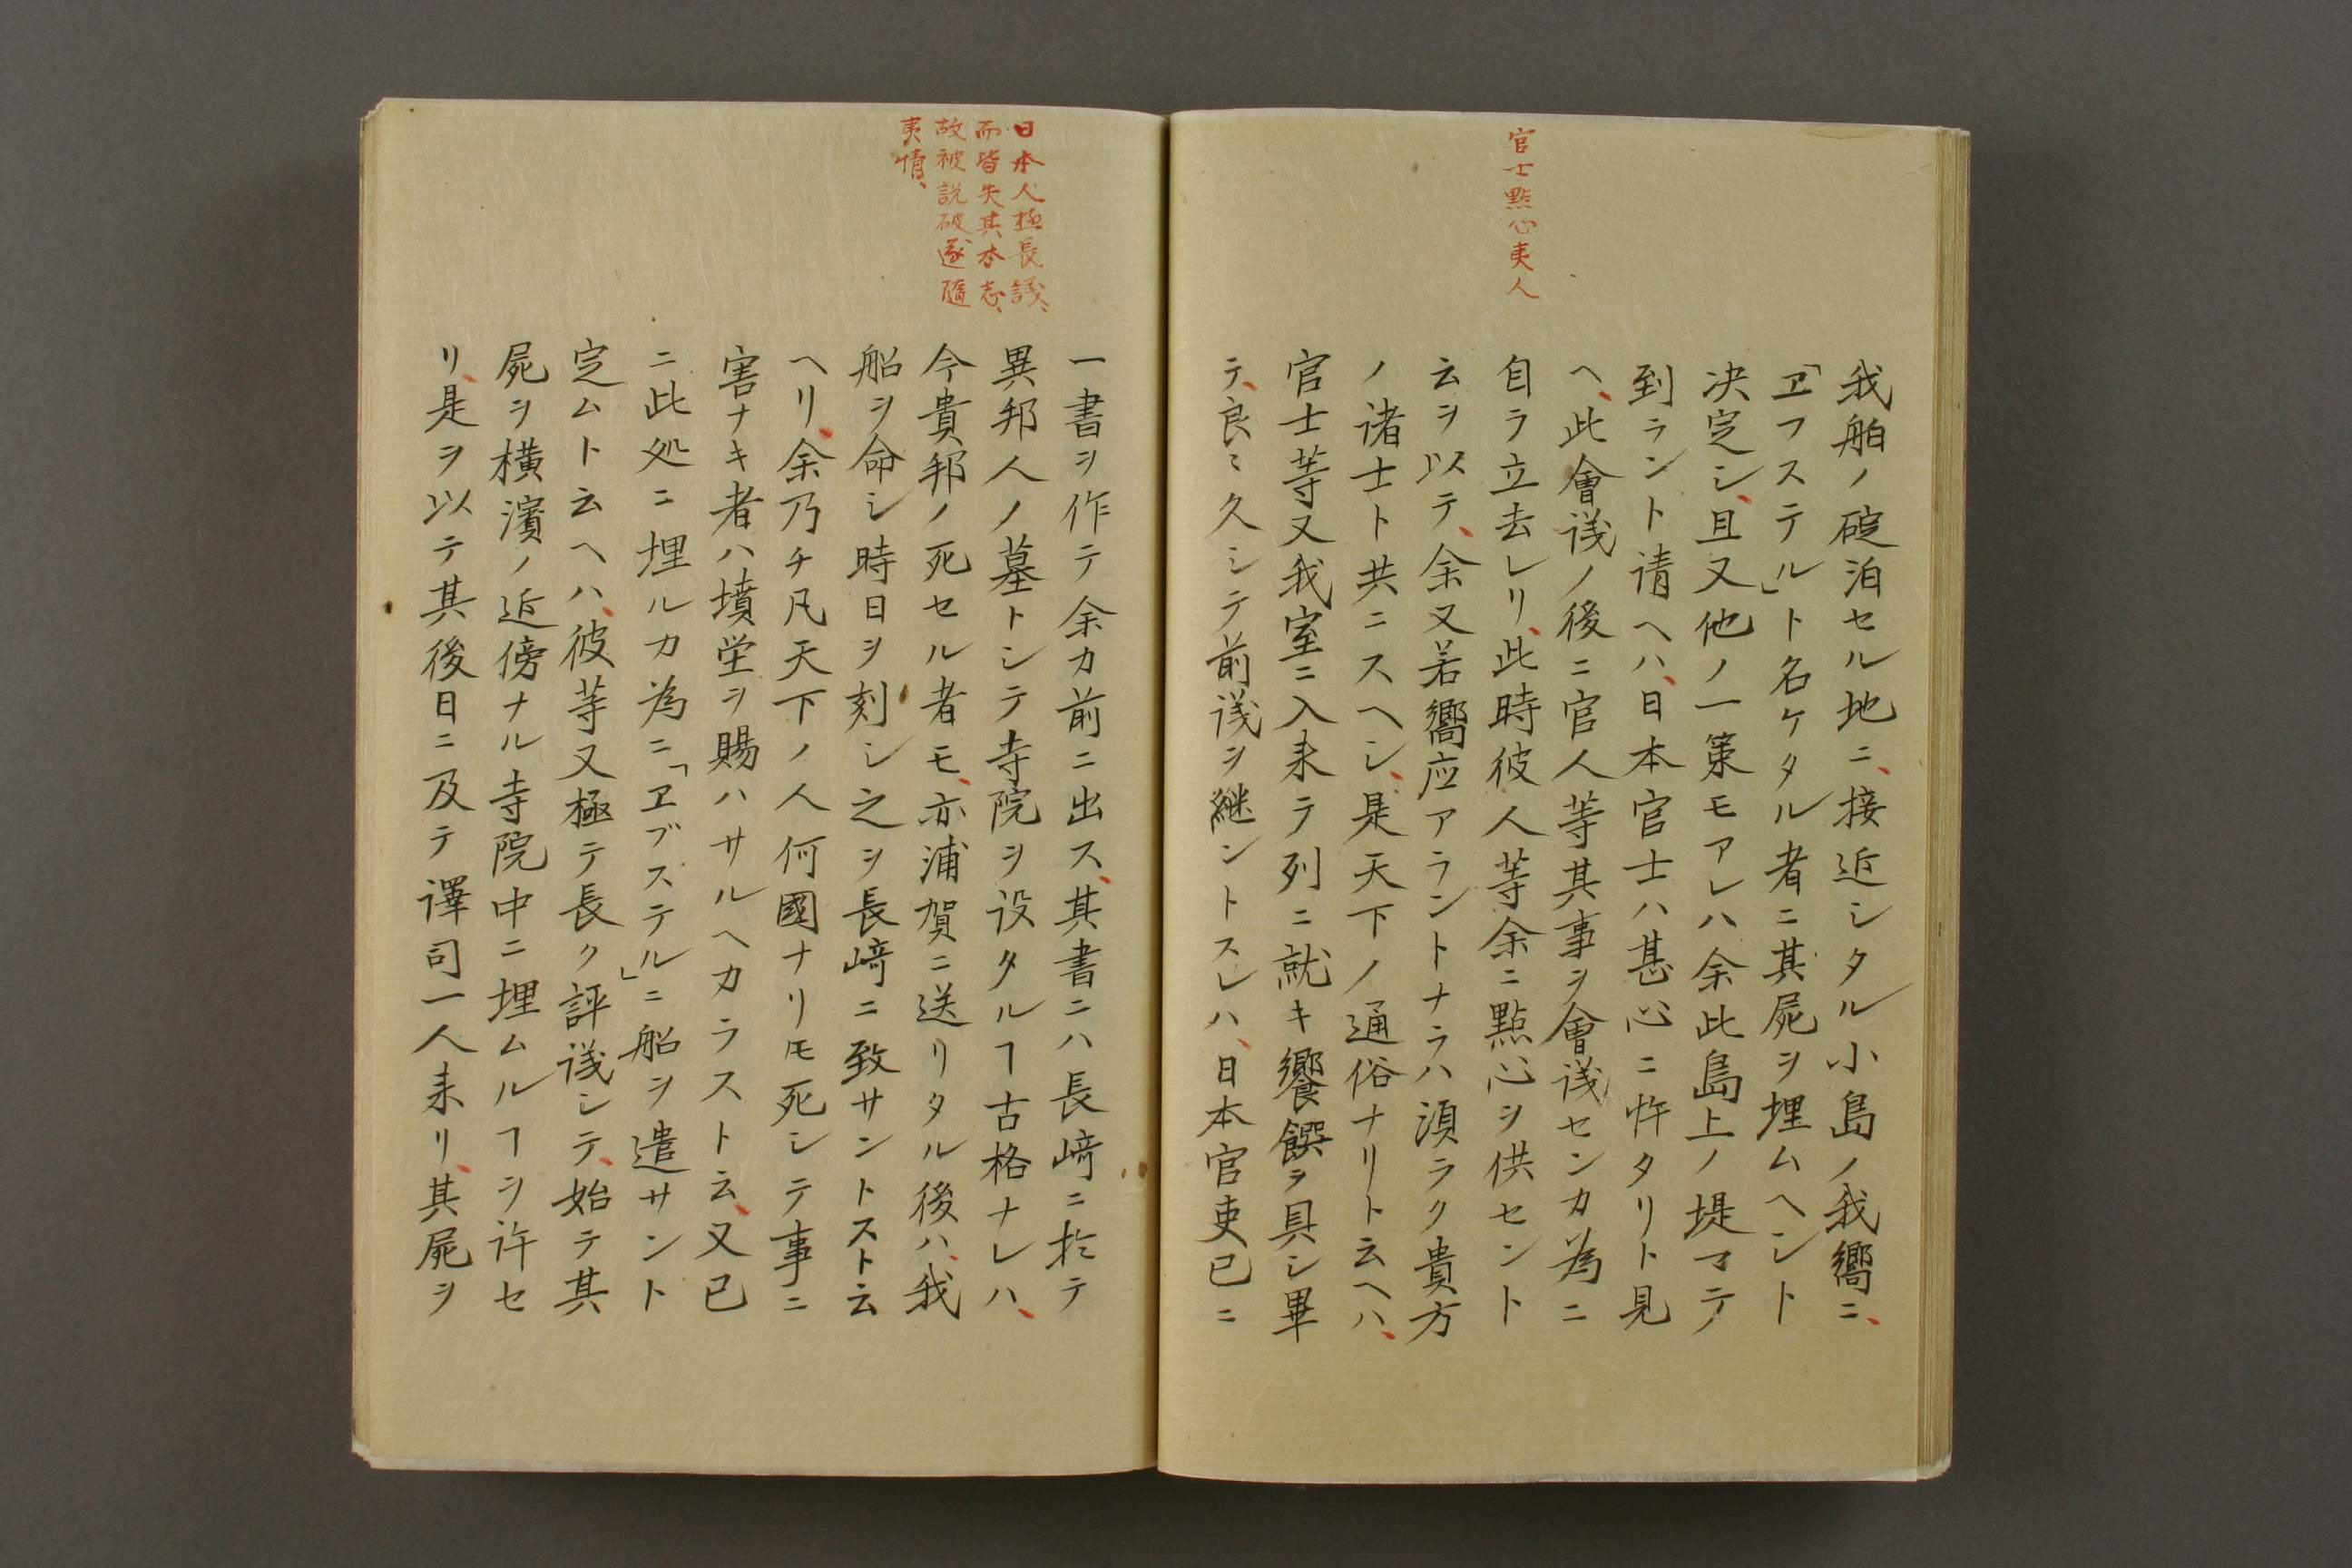 官士點心夷人
我舶ノ碇泊セル地ニ、接近シタル小島ノ我嚮ニ、
「ヱフステル」ト名ケタル者ニ其屍ヲ埋ムヘント
決定シ、且又他ノ一策モアレハ余此島上ノ堤マテ
到ラント請ヘハ、日本官士ハ甚心ニ忤タリト見
ヘ、此會議ノ後ニ官人等其事ヲ會議センカ為ニ
自ラ立去レリ、此時彼人等余ニ點心ヲ供セント
云ヲ以テ、余又若嚮应アラントナラハ湏ラク貴方
ノ諸士ト共ニスヘシ、是天下ノ通俗ナリト云ヘハ、
官士等又我室ニ入来テ列ニ就キ饗饌ヲ具シ畢
テ、良ミ久シテ前議ヲ継ントスレハ、日本官吏已ニ
日本人極長議、
而皆失其本志、
故被説破遂隨
夷情、
一書ヲ作テ余カ前ニ出ス、其書ニハ長﨑ニ於テ
異邦人ノ墓トシテ寺院ヲ设タルヿ古格ナレハ、
今貴邦ノ死セル者モ、亦浦賀ニ送リタル後ハ、我
船ヲ命シ時日ヲ刻シ之ヲ長﨑ニ致サントスト云
ヘリ、余乃チ凡天下ノ人何國ナリ𪜈死シテ事ニ
害ナキ者ハ墳塋ヲ賜ハサルヘカラスト云、又已
ニ此処ニ埋ルカ為ニ「ヱブステル」ニ船ヲ遣サント
定ムト云ヘハ、彼等又極テ長ク評議シテ、始テ其
屍ヲ横濱ノ近傍ナル寺院中ニ埋ムルヿヲ许セ
リ、是ヲ以テ其後日ニ及テ譯司一人来リ、其屍ヲ